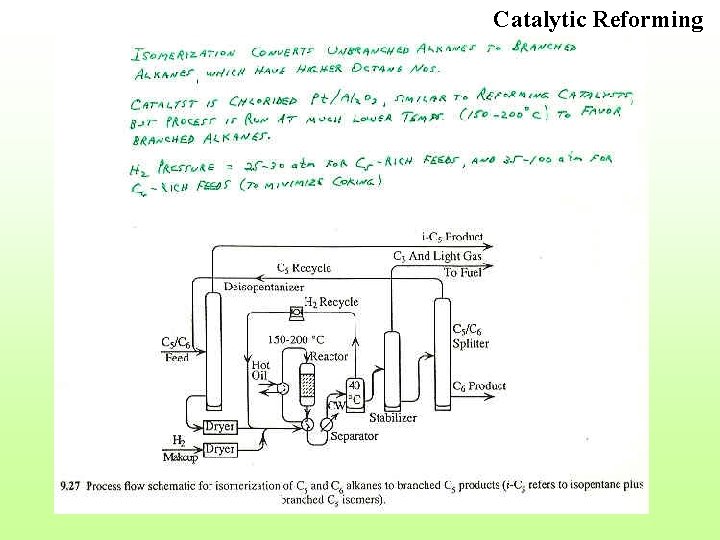 Catalytic Reforming
ISOMERIZATION CONVERTS UNBRANCHED ALKANES TO BRANCHED
ALKANES, WHICH HAVE HIGHER OCTANE NOS.
CATALYST IS CHLORIDED Pt/Al₂O₃, SIMILAR TO REFORMING CATALYSTS,
BUT PROCESS IS RUN AT MUCH LOWER TEMPS. (150-200°C) TO FAVOR
BRANCHED ALKANES.
H₂ PRESSURE = 25-30 atm FOR C₅-RICH FEEDS, AND 35-100 atm FOR
C₆-RICH FEEDS (TO MINIMIZE COKING)
i-C₅ Product
C₃ And Light Gas
To Fuel
C₅ Recycle
Deisopentanizer
H₂ Recycle
C₅/C₆
Feed
150-200 °C
Reactor
Hot
Oil
C₅/C₆
Splitter
40
°C
CW
C₆ Product
Stabilizer
Dryer
Separator
H₂
Makeup
Dryer
9.27 Process flow schematic for isomerization of C₅ and C₆ alkanes to branched C₅ products (i-C₅ refers to isopentane plus
branched C₅ isomers).